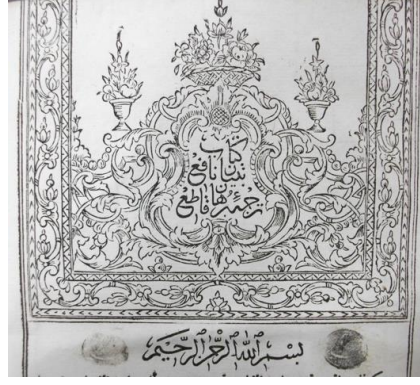 كتاب
تبيان نافع
ترجمۀ برهان قاطع
بسم الله الرحمن الرحيم